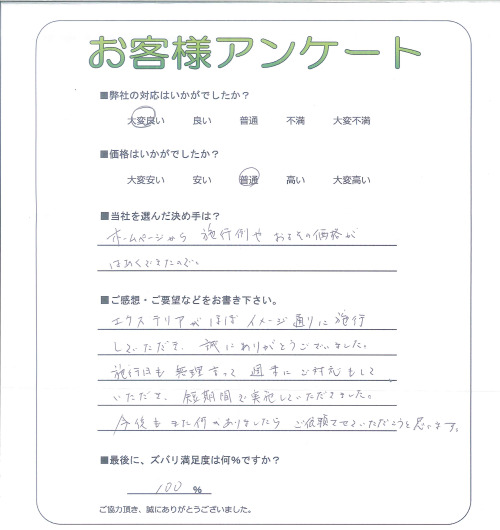 お客様アンケート
■弊社の対応はいかがでしたか？
大変良い 良い 普通 不満 大変不満
■価格はいかがでしたか？
大変安い 安い 普通 高い 大変高い
■当社を選んだ決め手は？
ホームページから 施行例や およその価格が
はあくできたので。
■ご感想・ご要望などをお書き下さい。
エクステリアがほぼイメージ通りに施行
していただき、誠にありがとうございました。
施行日も無理言って 週末にご対応もして
いただき、短期間で実施していただきました。
今後もまた何かありましたら ご依頼させていただこうと思います。
■最後に、ズバリ満足度は何%ですか？
100 %
ご協力頂き、誠にありがとうございました。